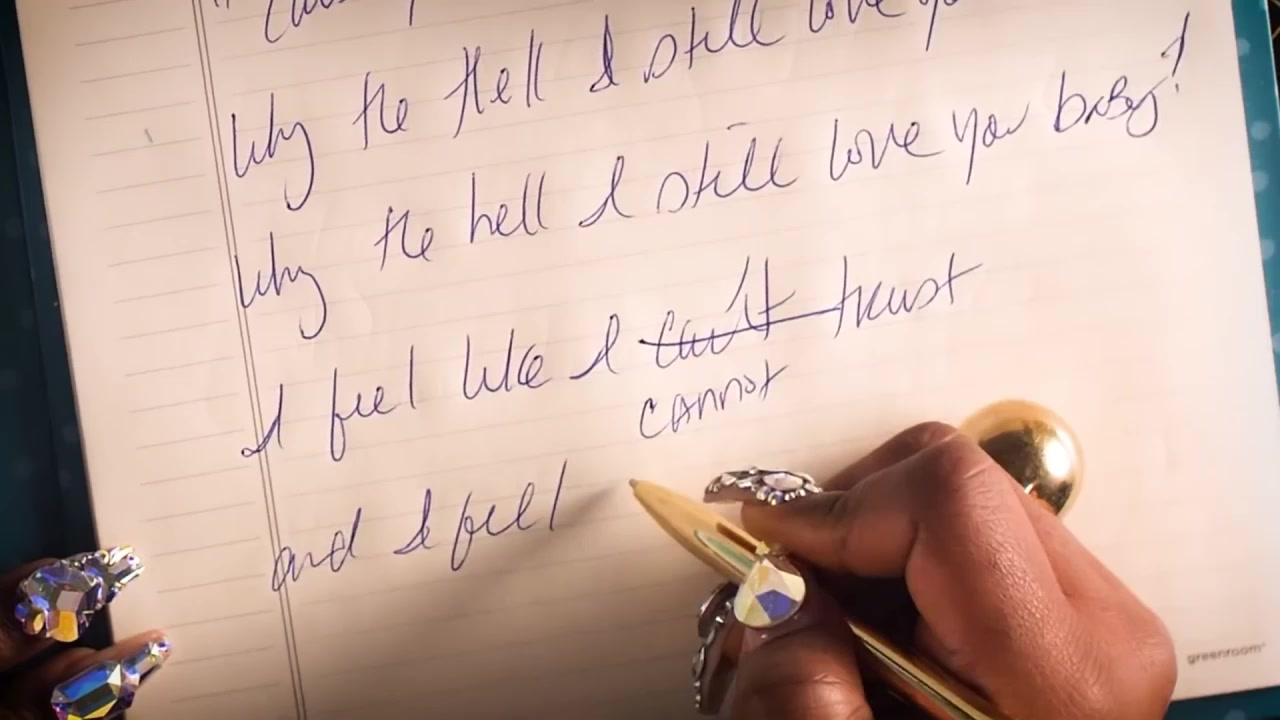 Why the Hell I still love you
Why the hell I still love you baby!
I feel like I can't trust
cannot
and I feel
greenroom